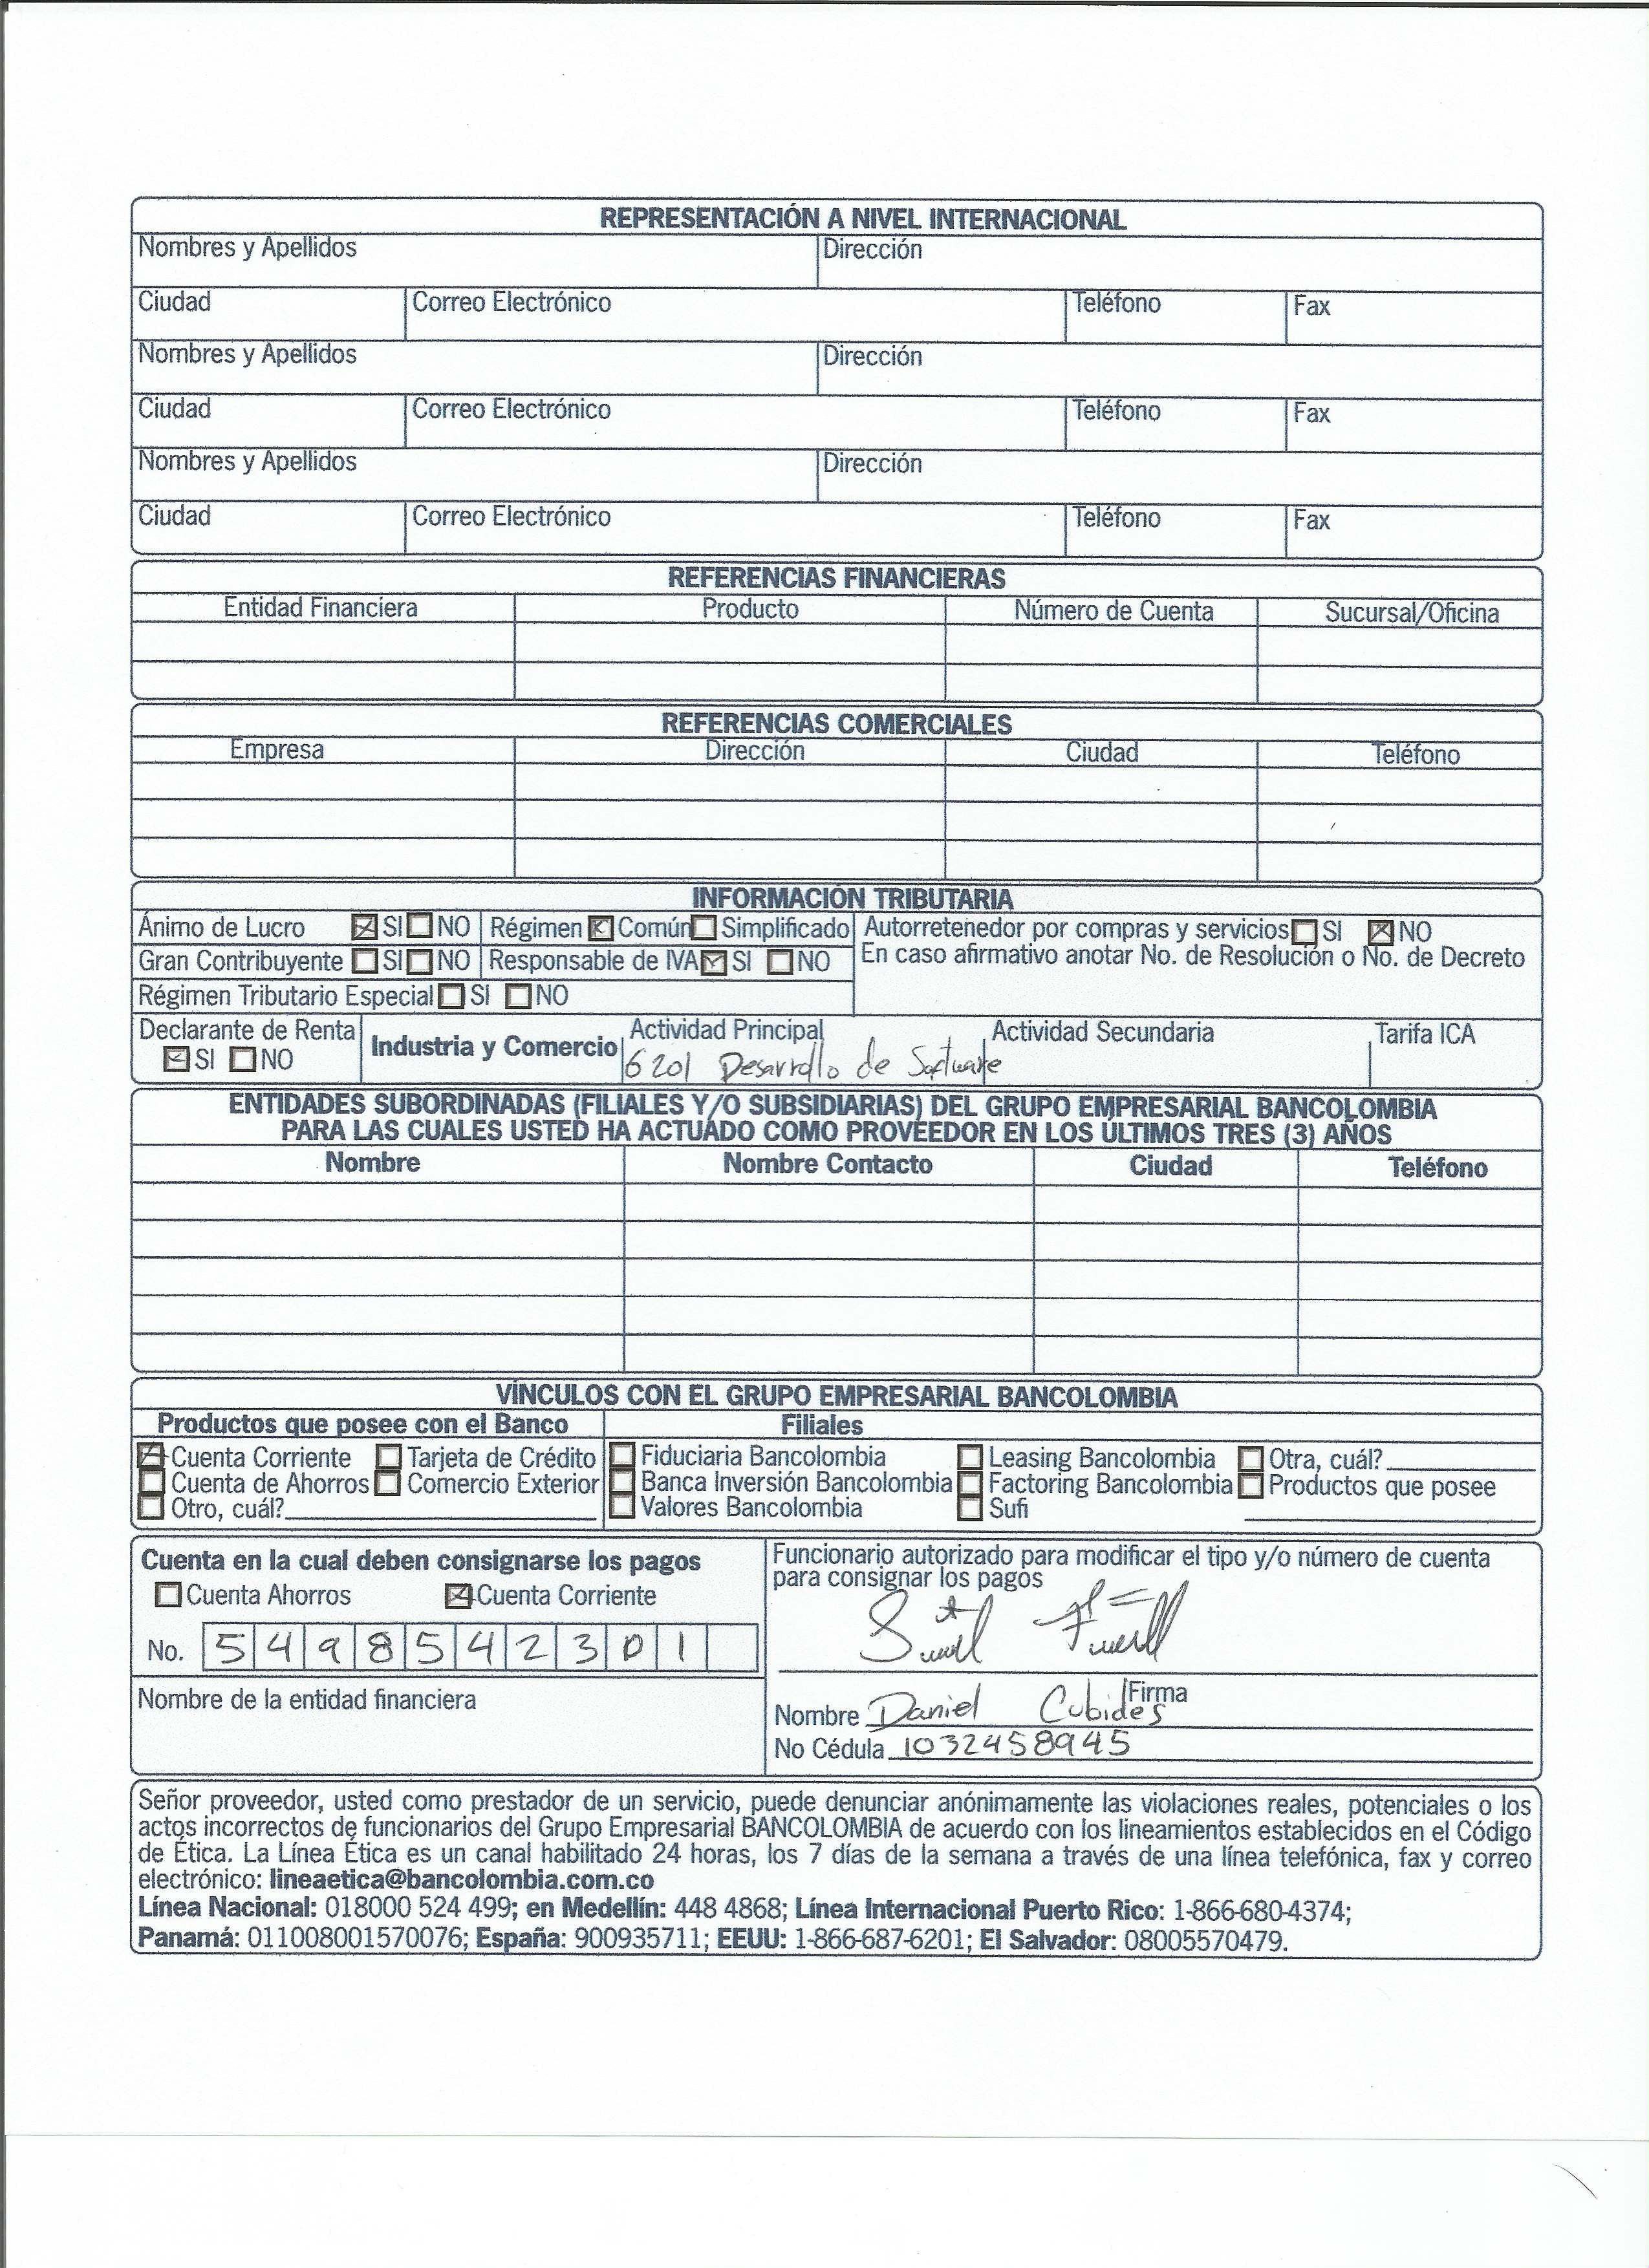 REPRESENTACIÓN A NIVEL INTERNACIONAL
Nombres y Apellidos Dirección
Ciudad Correo Electrónico Teléfono Fax
Nombres y Apellidos Dirección
Ciudad Correo Electrónico Teléfono Fax
Nombres y Apellidos Dirección
Ciudad Correo Electrónico Teléfono Fax
REFERENCIAS FINANCIERAS
Entidad Financiera Producto Número de Cuenta Sucursal/Oficina
REFERENCIAS COMERCIALES
Empresa Dirección Ciudad Teléfono
INFORMACIÓN TRIBUTARIA
Ánimo de Lucro SI NO Régimen Común Simplificado Autorretenedor por compras y servicios SI NO
Gran Contribuyente SI NO Responsable de IVA SI NO En caso afirmativo anotar No. de Resolución o No. de Decreto
Régimen Tributario Especial SI NO
Declarante de Renta Industria y Comercio Actividad Principal Actividad Secundaria Tarifa ICA
SI NO 6201 Desarrollo de Software
ENTIDADES SUBORDINADAS (FILIALES Y/O SUBSIDIARIAS) DEL GRUPO EMPRESARIAL BANCOLOMBIA
PARA LAS CUALES USTED HA ACTUADO COMO PROVEEDOR EN LOS ÚLTIMOS TRES (3) AÑOS
Nombre Nombre Contacto Ciudad Teléfono
VÍNCULOS CON EL GRUPO EMPRESARIAL BANCOLOMBIA
Productos que posee con el Banco Filiales
Cuenta Corriente Tarjeta de Crédito Fiduciaria Bancolombia Leasing Bancolombia Otra, cuál?
Cuenta de Ahorros Comercio Exterior Banca Inversión Bancolombia Factoring Bancolombia Productos que posee
Otro, cuál? Valores Bancolombia Sufi
Cuenta en la cual deben consignarse los pagos
Cuenta Ahorros Cuenta Corriente
No. 5498542301
Nombre de la entidad financiera
Funcionario autorizado para modificar el tipo y/o número de cuenta
para consignar los pagos
Firma
Nombre Daniel Cubides
No Cédula 1032458945
Señor proveedor, usted como prestador de un servicio, puede denunciar anónimamente las violaciones reales, potenciales o los
actos incorrectos de funcionarios del Grupo Empresarial BANCOLOMBIA de acuerdo con los lineamientos establecidos en el Código
de Ética. La Línea Ética es un canal habilitado 24 horas, los 7 días de la semana a través de una línea telefónica, fax y correo
electrónico: lineaetica@bancolombia.com.co
Línea Nacional: 018000 524 499; en Medellín: 448 4868; Línea Internacional Puerto Rico: 1-866-680-4374;
Panamá: 011008001570076; España: 900935711; EEUU: 1-866-687-6201; El Salvador: 08005570479.